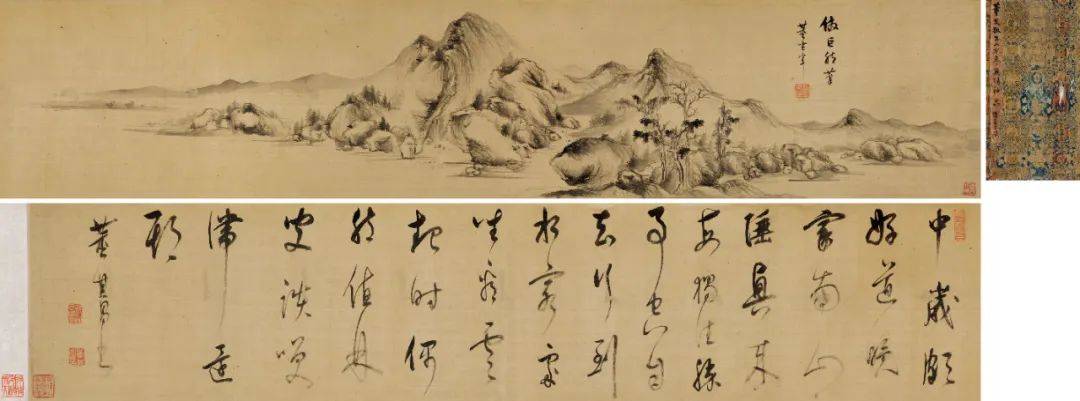 倣巨然筆
董玄宰
中歲頗
好道晚
家南山
陲興来
每獨往勝
事空自
知行到
水窮處
坐看雲
起時偶
然值林
叟談笑
滯還
期
董其昌書